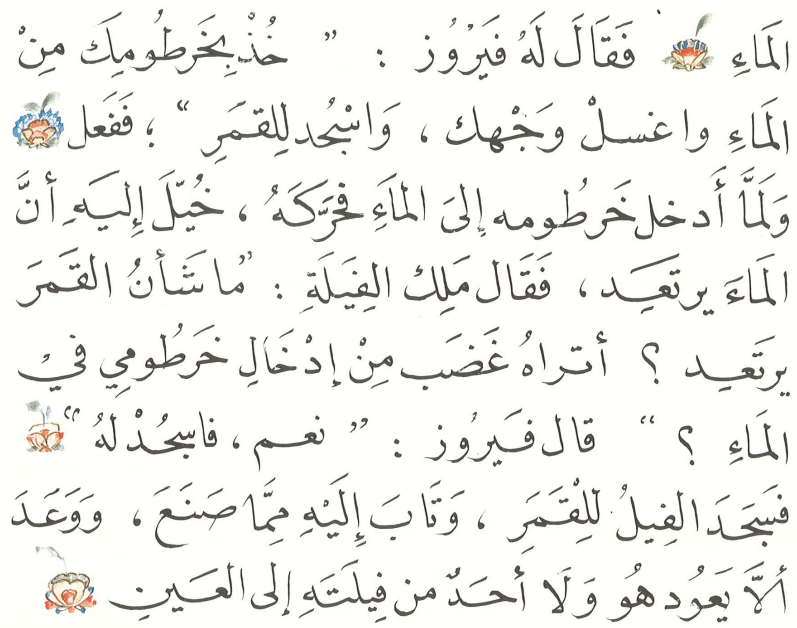 المَاءِ فَقَالَ لَهُ فَيْرُوز : " خُذْ بِخَرطُومِكَ مِنْ
المَاءِ واغسلْ وَجْهك ، وَاسْجُد لِلقمَرِ " ؛ فَفَعل
وَلَمَّا أَدخل خَرطُومه إلىَ الماَءِ فحَرَّكَهُ ، خُيّلَ إِليَهِ أنَّ
المَاءَ يرتَعِد ، فَقَال مَلِك الفِيَلَةِ : " مَا شَأنُ القَمَرَ
يرتَعِد ؟ أتراهُ غَضَب مِنْ إدْخَالِ خَرطُومِي فيْ
المَاءِ ؟ " قال فَيرُوز : " نعم ، فاسجُدْ لهُ "
فَسَجَدَ الفِيلُ لِلْقَمَرِ ، وَتَابَ إِلَيْهِ مِمَّا صَنَعَ ، وَوَعَدَ
ألاَّ يَعُود هُو وَلَا أحَدٌ من فِيلَتَهِ إلى العَينِ